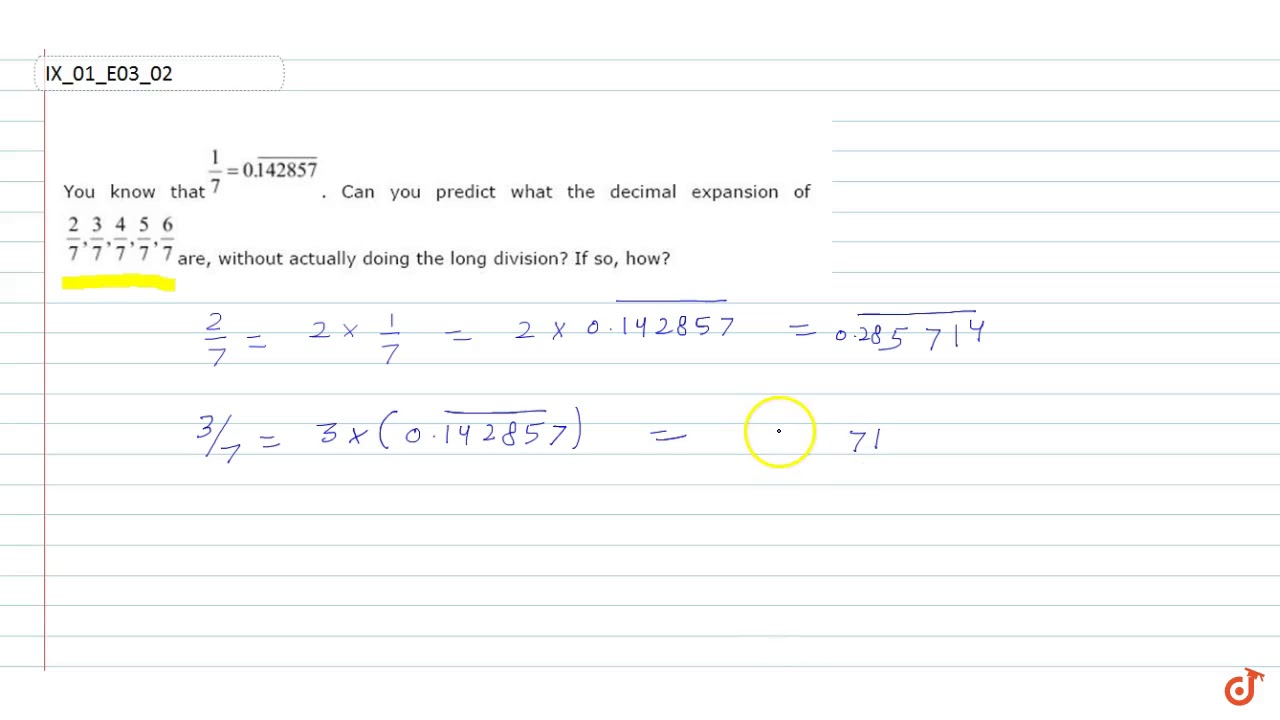 IX_01_E03_02
You know that 1/7 = 0.1̅4̅2̅8̅5̅7̅ . Can you predict what the decimal expansion of
2/7, 3/7, 4/7, 5/7, 6/7 are, without actually doing the long division? If so, how?
2/7 = 2 × 1/7 = 2 × 0.1̅4̅2̅8̅5̅7̅ = 0.2̅8̅5̅7̅1̅4̅
3/7 = 3 × (0.1̅4̅2̅8̅5̅7̅) = 71